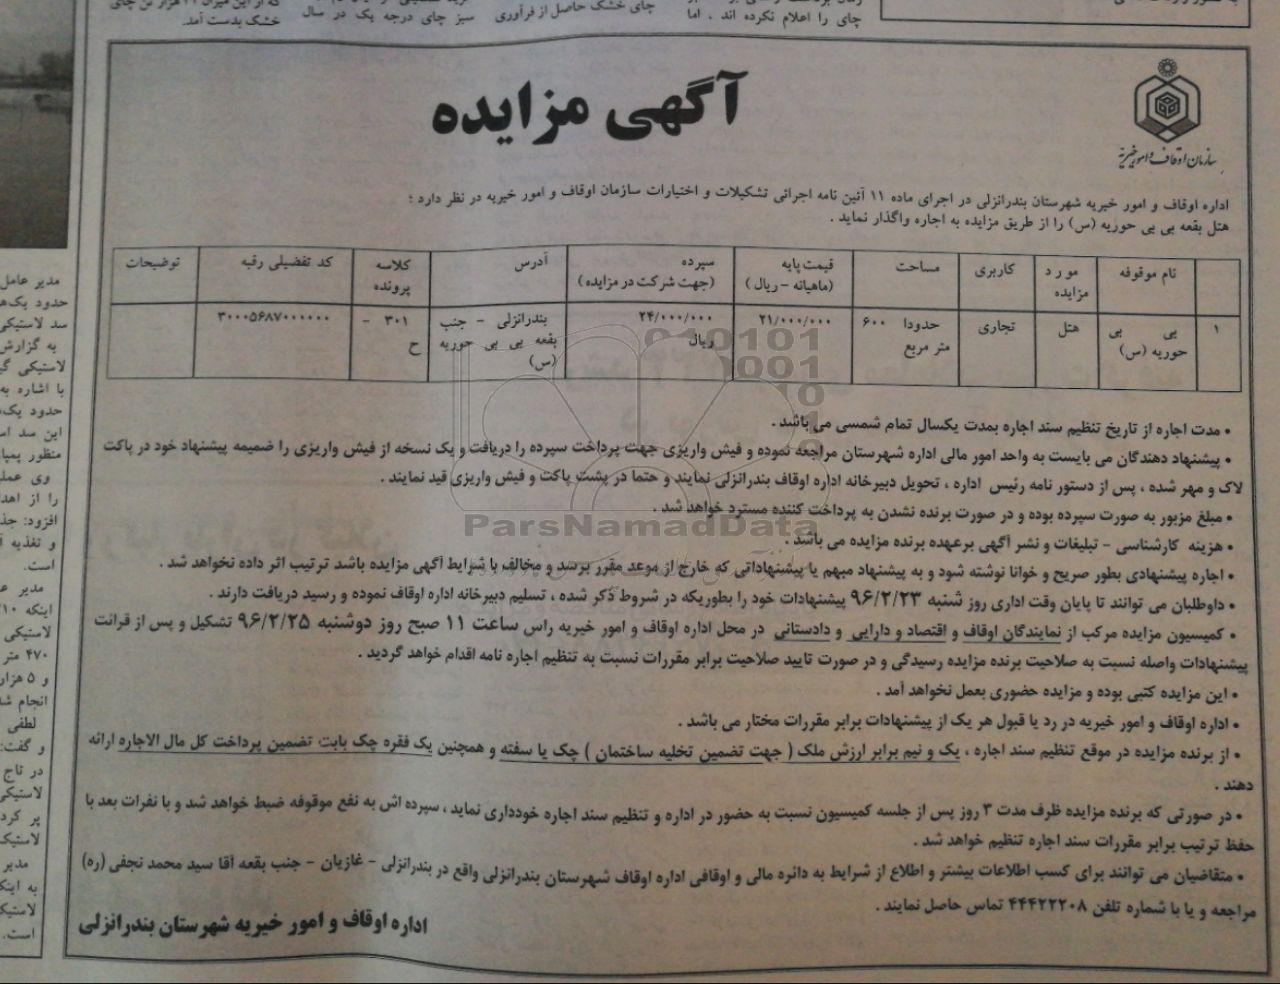 که از این میزان ۲۱ هزار تن چای
خشک بدست آمد.
سبز چای درجه یک در سال
چای خشک حاصل از فرآوری
چای را اعلام نکرده اند ، اما
سازمان اوقاف و امور خیریه
آگهی مزایده
اداره اوقاف و امور خیریه شهرستان بندرانزلی در اجرای ماده ۱۱ آئین نامه اجرائی تشکیلات و اختیارات سازمان اوقاف و امور خیریه در نظر دارد ؛
هتل بقعه بی بی حوریه (س) را از طریق مزایده به اجاره واگذار نماید .
نام موقوفه
مورد مزایده
کاربری
مساحت
قیمت پایه (ماهیانه - ریال )
سپرده (جهت شرکت در مزایده)
آدرس
کلاسه پرونده
کد تفضیلی رقبه
توضیحات
۱
بی بی حوریه (س)
هتل
تجاری
حدودا ۶۰۰ متر مربع
۲۱/۰۰۰/۰۰۰
۲۴/۰۰۰/۰۰۰ ریال
بندرانزلی - جنب بقعه بی بی حوریه (س)
۳۰۱ - ح
۳۰۰۰۵۶۸۷۰۰۰۰۰۰
• مدت اجاره از تاریخ تنظیم سند اجاره بمدت یکسال تمام شمسی می باشد .
• پیشنهاد دهندگان می بایست به واحد امور مالی اداره شهرستان مراجعه نموده و فیش واریزی جهت پرداخت سپرده را دریافت و یک نسخه از فیش واریزی را ضمیمه پیشنهاد خود در پاکت
لاک و مهر شده ، پس از دستور نامه رئیس اداره ، تحویل دبیرخانه اداره اوقاف بندرانزلی نمایند و حتما در پشت پاکت و فیش واریزی قید نمایند .
• مبلغ مزبور به صورت سپرده بوده و در صورت برنده نشدن به پرداخت کننده مسترد خواهد شد .
ParsNamadData
• هزینه کارشناسی - تبلیغات و نشر آگهی برعهده برنده مزایده می باشد .
• اجاره پیشنهادی بطور صریح و خوانا نوشته شود و به پیشنهاد مبهم یا پیشنهاداتی که خارج از موعد مقرر برسد و مخالف با شرایط آگهی مزایده باشد ترتیب اثر داده نخواهد شد .
• داوطلبان می توانند تا پایان وقت اداری روز شنبه ۹۶/۲/۲۳ پیشنهادات خود را بطوریکه در شروط ذکر شده ، تسلیم دبیرخانه اداره اوقاف نموده و رسید دریافت دارند .
• کمیسیون مزایده مرکب از نمایندگان اوقاف و اقتصاد و دارایی و دادستانی در محل اداره اوقاف و امور خیریه راس ساعت ۱۱ صبح روز دوشنبه ۹۶/۲/۲۵ تشکیل و پس از قرائت
پیشنهادات واصله نسبت به صلاحیت برنده مزایده رسیدگی و در صورت تایید صلاحیت برابر مقررات نسبت به تنظیم اجاره نامه اقدام خواهد گردید .
• این مزایده کتبی بوده و مزایده حضوری بعمل نخواهد آمد .
• اداره اوقاف و امور خیریه در رد یا قبول هر یک از پیشنهادات برابر مقررات مختار می باشد .
• از برنده مزایده در موقع تنظیم سند اجاره ، یک و نیم برابر ارزش ملک ( جهت تضمین تخلیه ساختمان ) چک یا سفته و همچنین یک فقره چک بابت تضمین پرداخت کل مال الاجاره ارائه
دهند .
• در صورتی که برنده مزایده ظرف مدت ۳ روز پس از جلسه کمیسیون نسبت به حضور در اداره و تنظیم سند اجاره خودداری نماید ، سپرده اش به نفع موقوفه ضبط خواهد شد و با نفرات بعد با
حفظ ترتیب برابر مقررات سند اجاره تنظیم خواهد شد .
• متقاضیان می توانند برای کسب اطلاعات بیشتر و اطلاع از شرایط به دائره مالی و اوقافی اداره اوقاف شهرستان بندرانزلی واقع در بندرانزلی - غازیان - جنب بقعه آقا سید محمد نجفی (ره)
مراجعه و یا با شماره تلفن ۴۴۴۲۲۲۰۸ تماس حاصل نمایند .
اداره اوقاف و امور خیریه شهرستان بندرانزلی
مدیر عامل
حدود یک
سد لاستیکی
به گزارش
لاستیکی
با اشاره به
حدود یک
این سد
منظور
وی
را از
افزود:
و تغذیه
است.
مدیر
اینکه
لاستیکی
۴۷۰ متر
و ۵ هزار
انجام
لطفی
و گفت:
در تاج
لاستیکی
پر کرد
لاستیک
مدیر
به
لاستیک
است.